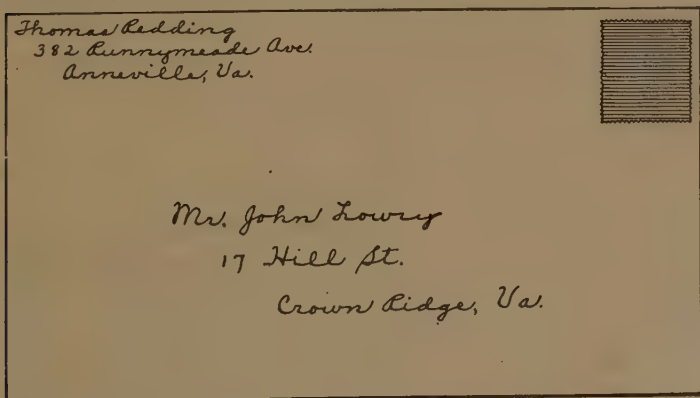 Thomas Redding
382 Runnymeade Ave.
Anneville, Va.
Mr. John Lowry
17 Hill St.
Crown Ridge, Va.